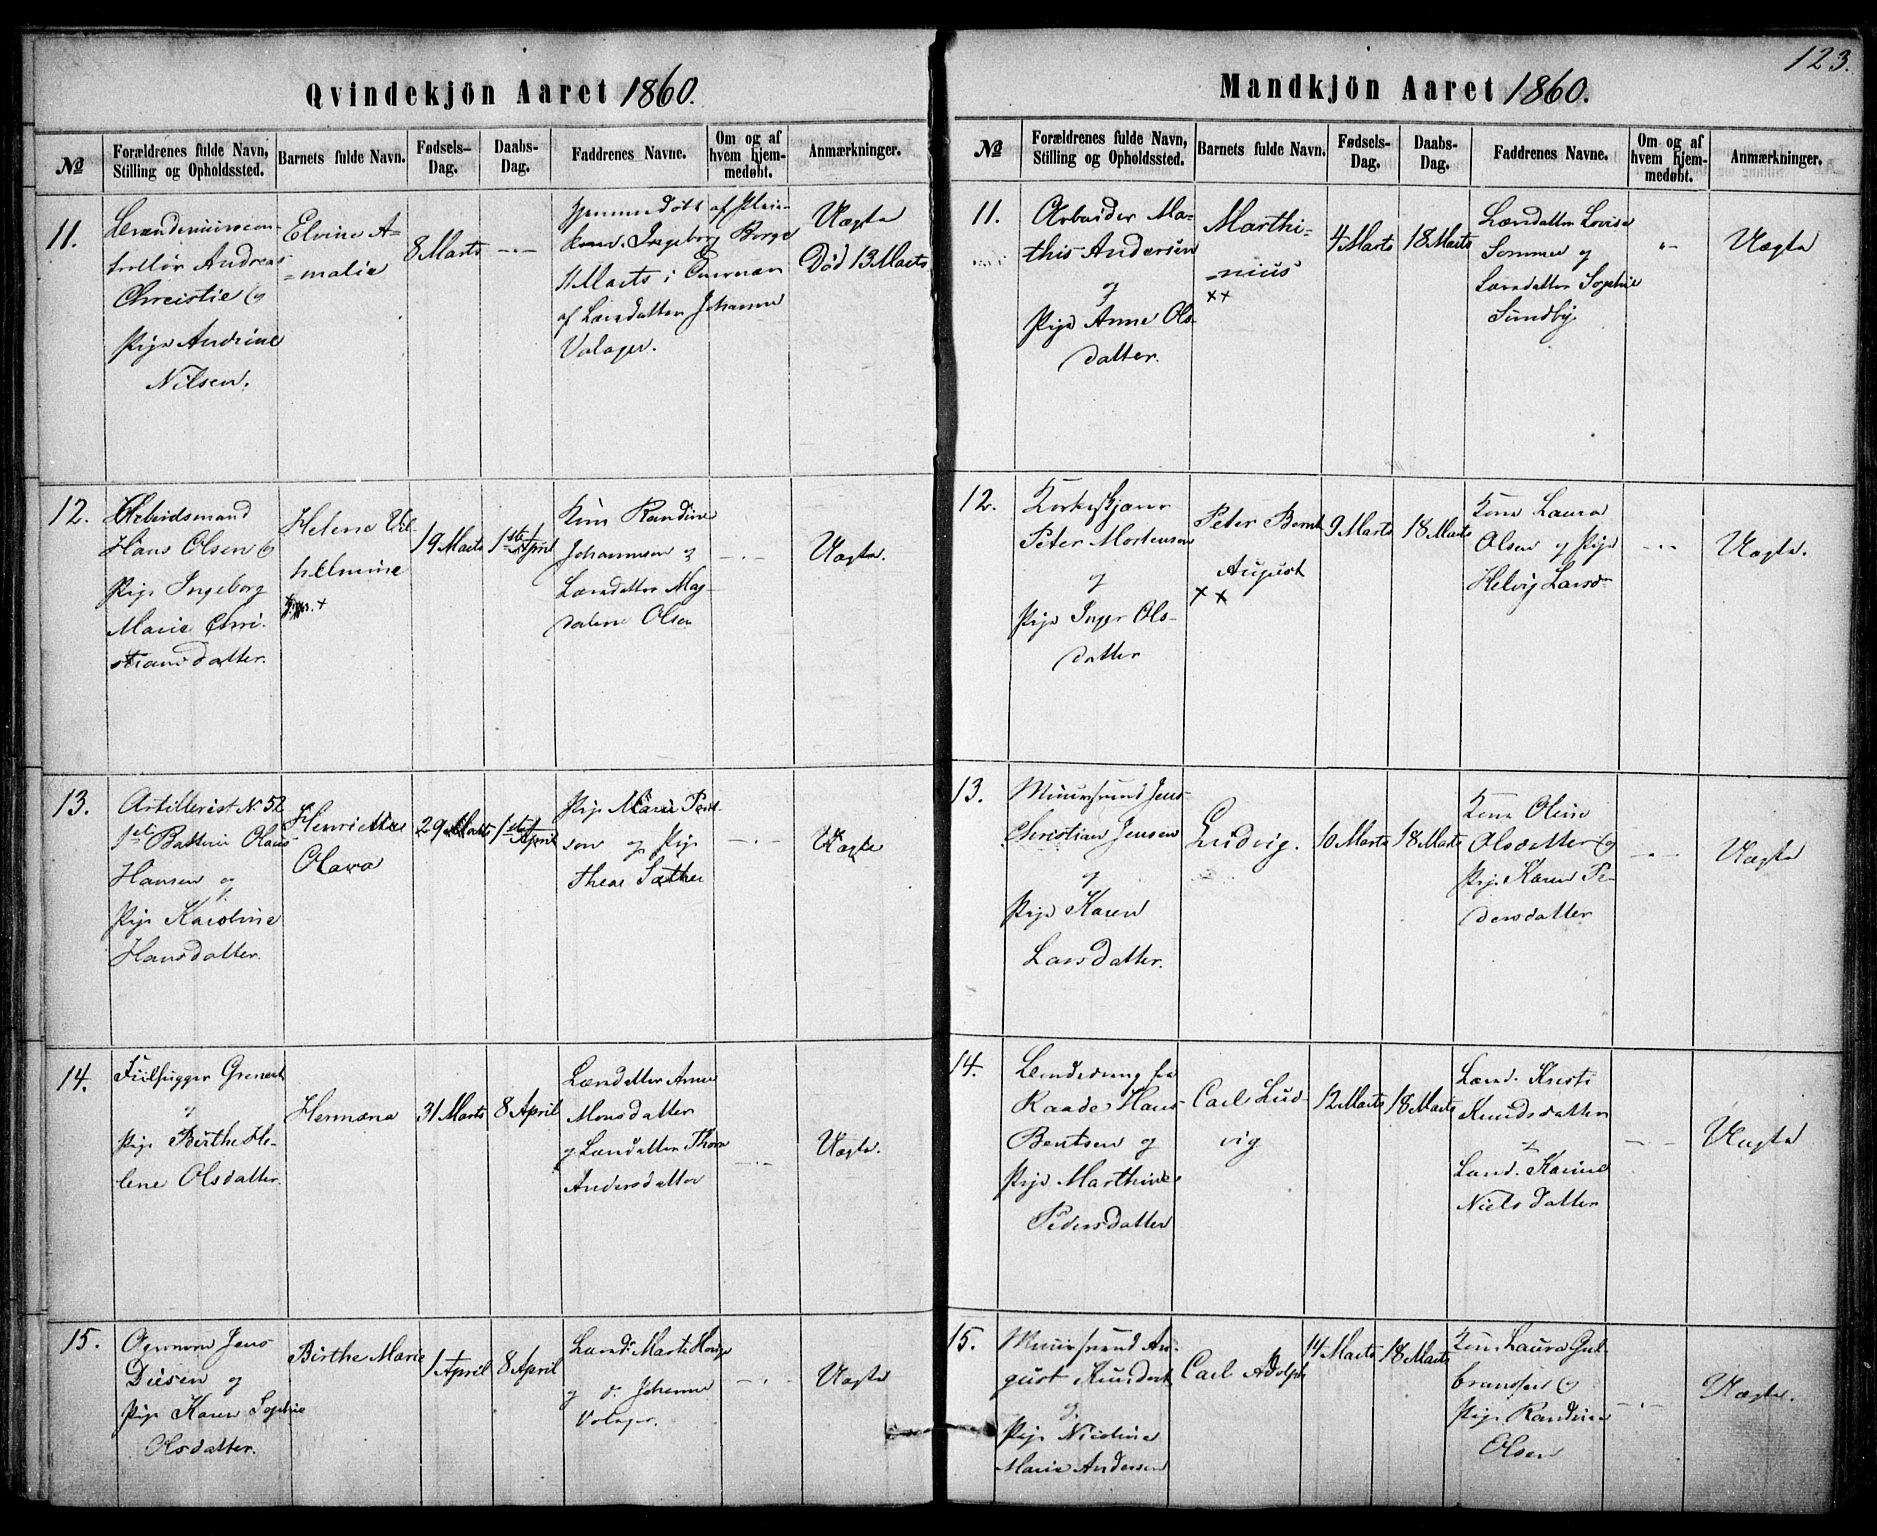 123.
Qvindekjön Aaret 1860.
№
Forældrenes fulde Navn, Stilling og Opholdssted.
Barnets fulde Navn.
Fødsels-Dag.
Daabs-Dag.
Faddrenes Navne.
Om og af hvem hjem-medøbt.
Anmærkninger.
11.
Andreas
Christie og
Pige Andrine
Nilsen.
Elvine A=
=malie
8 Marts
Hjemmedøbt af
Ingeborg Berge
11 Marts i
af Læredatter Johanne
Valager.
Uægte
Død 13 Marts
12.
Arbeidsmand
Hans Olsen og
Pige Ingeborg
Marie Chri-
stiansdatter.
Helene Vil
helmine
19 Marts
1ste April
Kone Randine
Johannesen og
Læredatter Mag
dalene Olsen
Uægte.
13.
Artillerist N. 52
1ste Batteri Olaus
Hansen og
Pige Karoline
Hansdatter.
Henriette
Olava
29 Marts
1ste April
Pige Marie
sen og Pige
Thea Sæther
Uægte
14.
og
Pige Birthe He-
lene Olsdatter.
Hermana
31 Marts
8 April
Læredatter Anne
Monsdatter
og Læredatter
Andersdatter
Uægte.
15.
Jens
og
Pige Karen Sophie
Olsdatter.
Birthe Marie
1 April
8 April
Læred.
og d. Johanne
Valager.
Uægte
Mandkjön Aaret 1860.
№
Forældrenes fulde Navn, Stilling og Opholdssted.
Barnets fulde Navn.
Fødsels-Dag.
Daabs-Dag.
Faddrenes Navne.
Om og af hvem hjem-medøbt.
Anmærkninger.
11.
Arbeider Ma-
this Andersen
og
Pige Anne Ols-
datter.
Marthi=
=nius
××
4 Marts
18 Marts
Læredatter Lovise
Sommer og
Læredatter Sophie
Sundby.
Uægte
12.
Peter Mortensen
og
Pige Inger Ols-
datter
Peter Bernt
August
××
9 Marts
18 Marts
Kone Laura
Olsen og Pige
Helvig
Uægte.
13.
Muursvend Jens
Christian Jensen
og
Pige Karen
Larsdatter.
Ludvig.
10 Marts
18 Marts
Kone Oline
Olsdatter og
Pige Karen Pe-
dersdatter
Uægte
14.
fra
Raade Hans
Bentsen og
Pige Marthine
Pedersdatter
Carl Lud
vig
12 Marts
18 Marts
Læred. Kristi
Knudsdatter
Læred. Karine
Nielsdatter
Uægte
15.
Muursvend Au-
gust
og
Pige Nicoline
Marie Andersen
Carl Adolph
14 Marts
18 Marts
Kone Laura Gul
bransen og
Pige Randine
Olsen
Uægte.